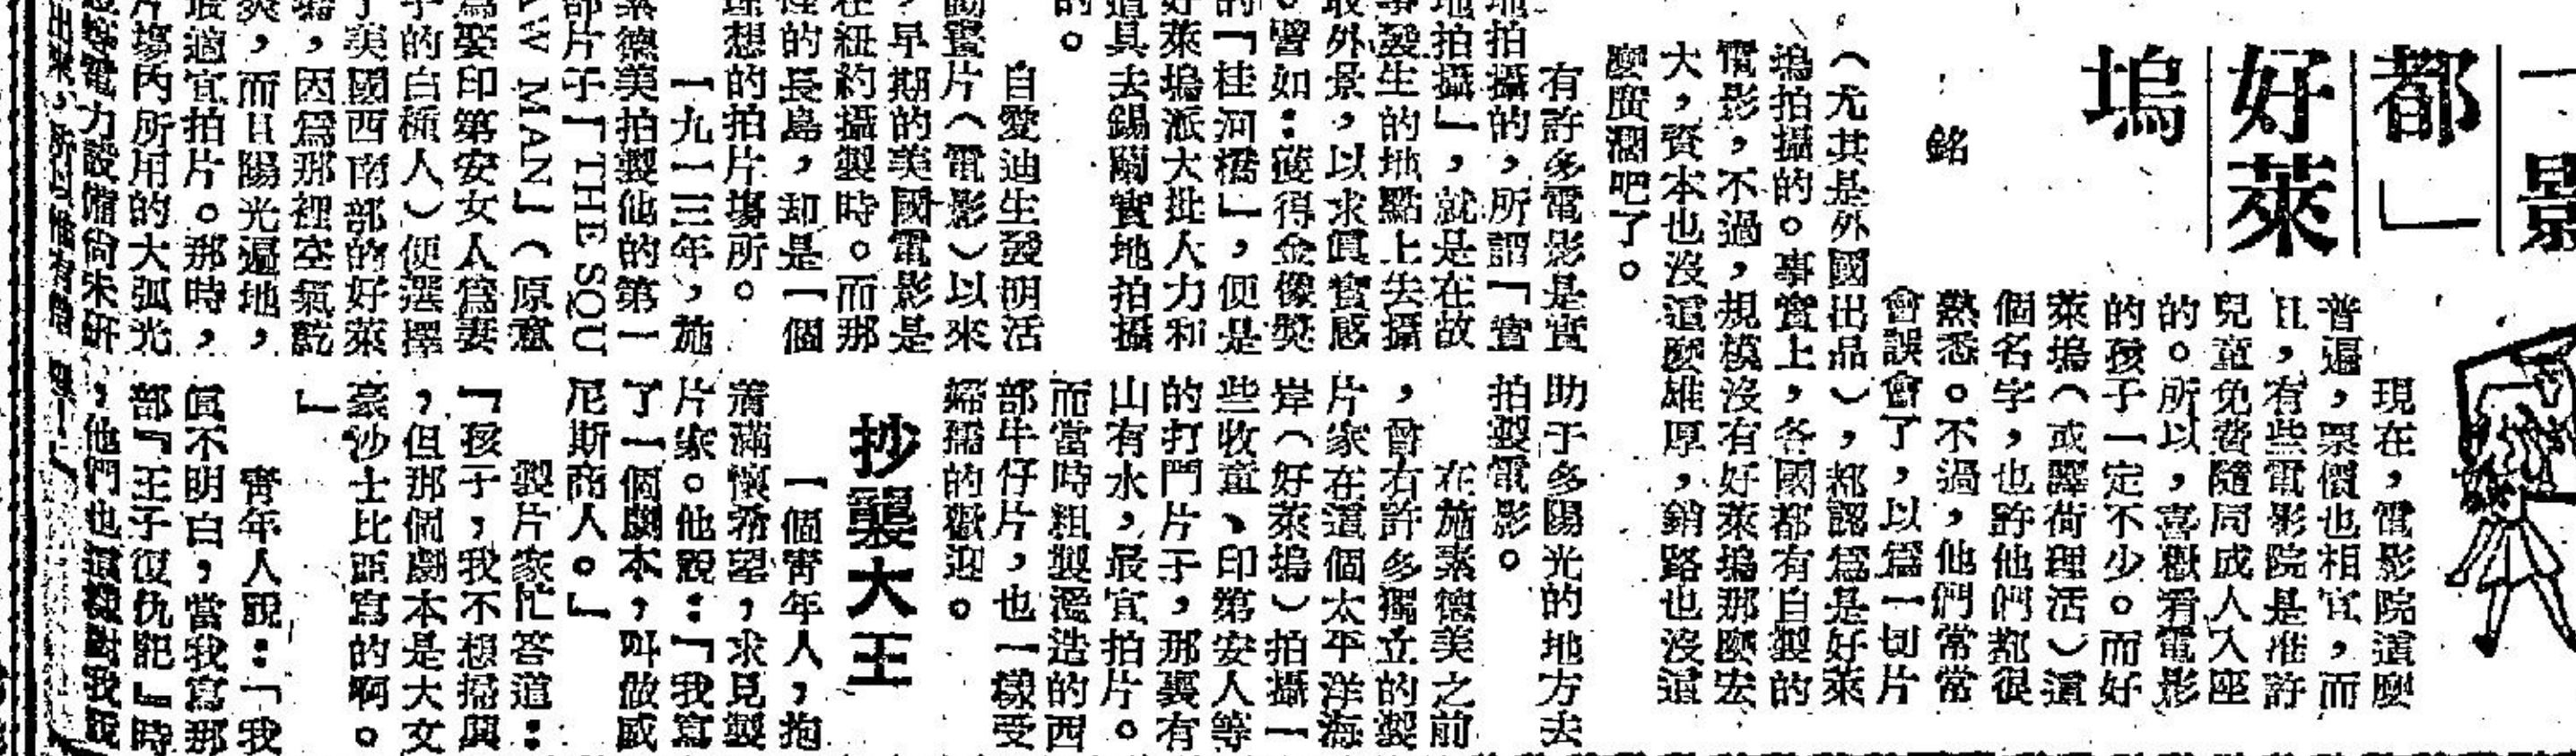 「影
都」
好萊
塢
銘
現在，電影院這麼
普遍，票價也相宜，而
且，有些電影院是准許
兒童免費隨同成人入座
的。所以，喜歡看電影
的孩子一定不少。而好
萊塢（或譯荷理活）這
個名字，也許他們都很
熟悉。不過，他們常常
會誤會了，以爲一切片
（尤其是外國出品），都認爲是好萊
塢拍攝的。事實上，各國都有自製的
電影，不過，規模沒有好萊塢那麼宏
大，資本也沒這麼雄厚，銷路也沒這
麼廣濶吧了。
有許多電影是實
地拍攝的，所謂「實
地拍攝」，就是在故
事發生的地點上去攝
取外景，以求眞實感
。譬如：獲得金像獎
的「桂河橋」，便是
好萊塢派大批人力和
道具去錫蘭實地拍攝
的。
自愛迪生發明活
動畫片（電影）以來
，早期的美國電影是
在紐約攝製時。而那
裡的長島，却是一個
理想的拍片塲所。
一九一三年，施
素德美拍製他的第一
部片子『THE SQU
AW MAN』（原意
爲娶印第安女人爲妻
子的白種人）便選擇
了美國西南部的好萊
塢，因爲那裡空氣乾
爽，而且陽光遍地，
最適宜拍片。那時，
片塲內所用的大弧光
電力設備尚未研
出來，所以惟有
助于多陽光的地方去
拍製電影。
在施素德美之前
，曾有許多獨立的製
片家在這個太平洋海
岸（好萊塢）拍攝一
些收童、印第安人等
的打鬥片子，那裏有
山有水，最宜拍片。
而當時粗製濫造的西
部牛仔片，也一樣受
婦孺的歡迎。
抄襲大王
一個靑年人，抱
着滿懷希望，求見製
片家。他說：「我寫
了一個劇本，叫做威
尼斯商人。」
製片家忙答道：
「孩子，我不想掃興
，但那個劇本是大文
豪沙士比亞寫的啊。
」
靑年人說：「我
眞不明白，當我寫那
部『王子復仇記』時
，他們也這樣對我說